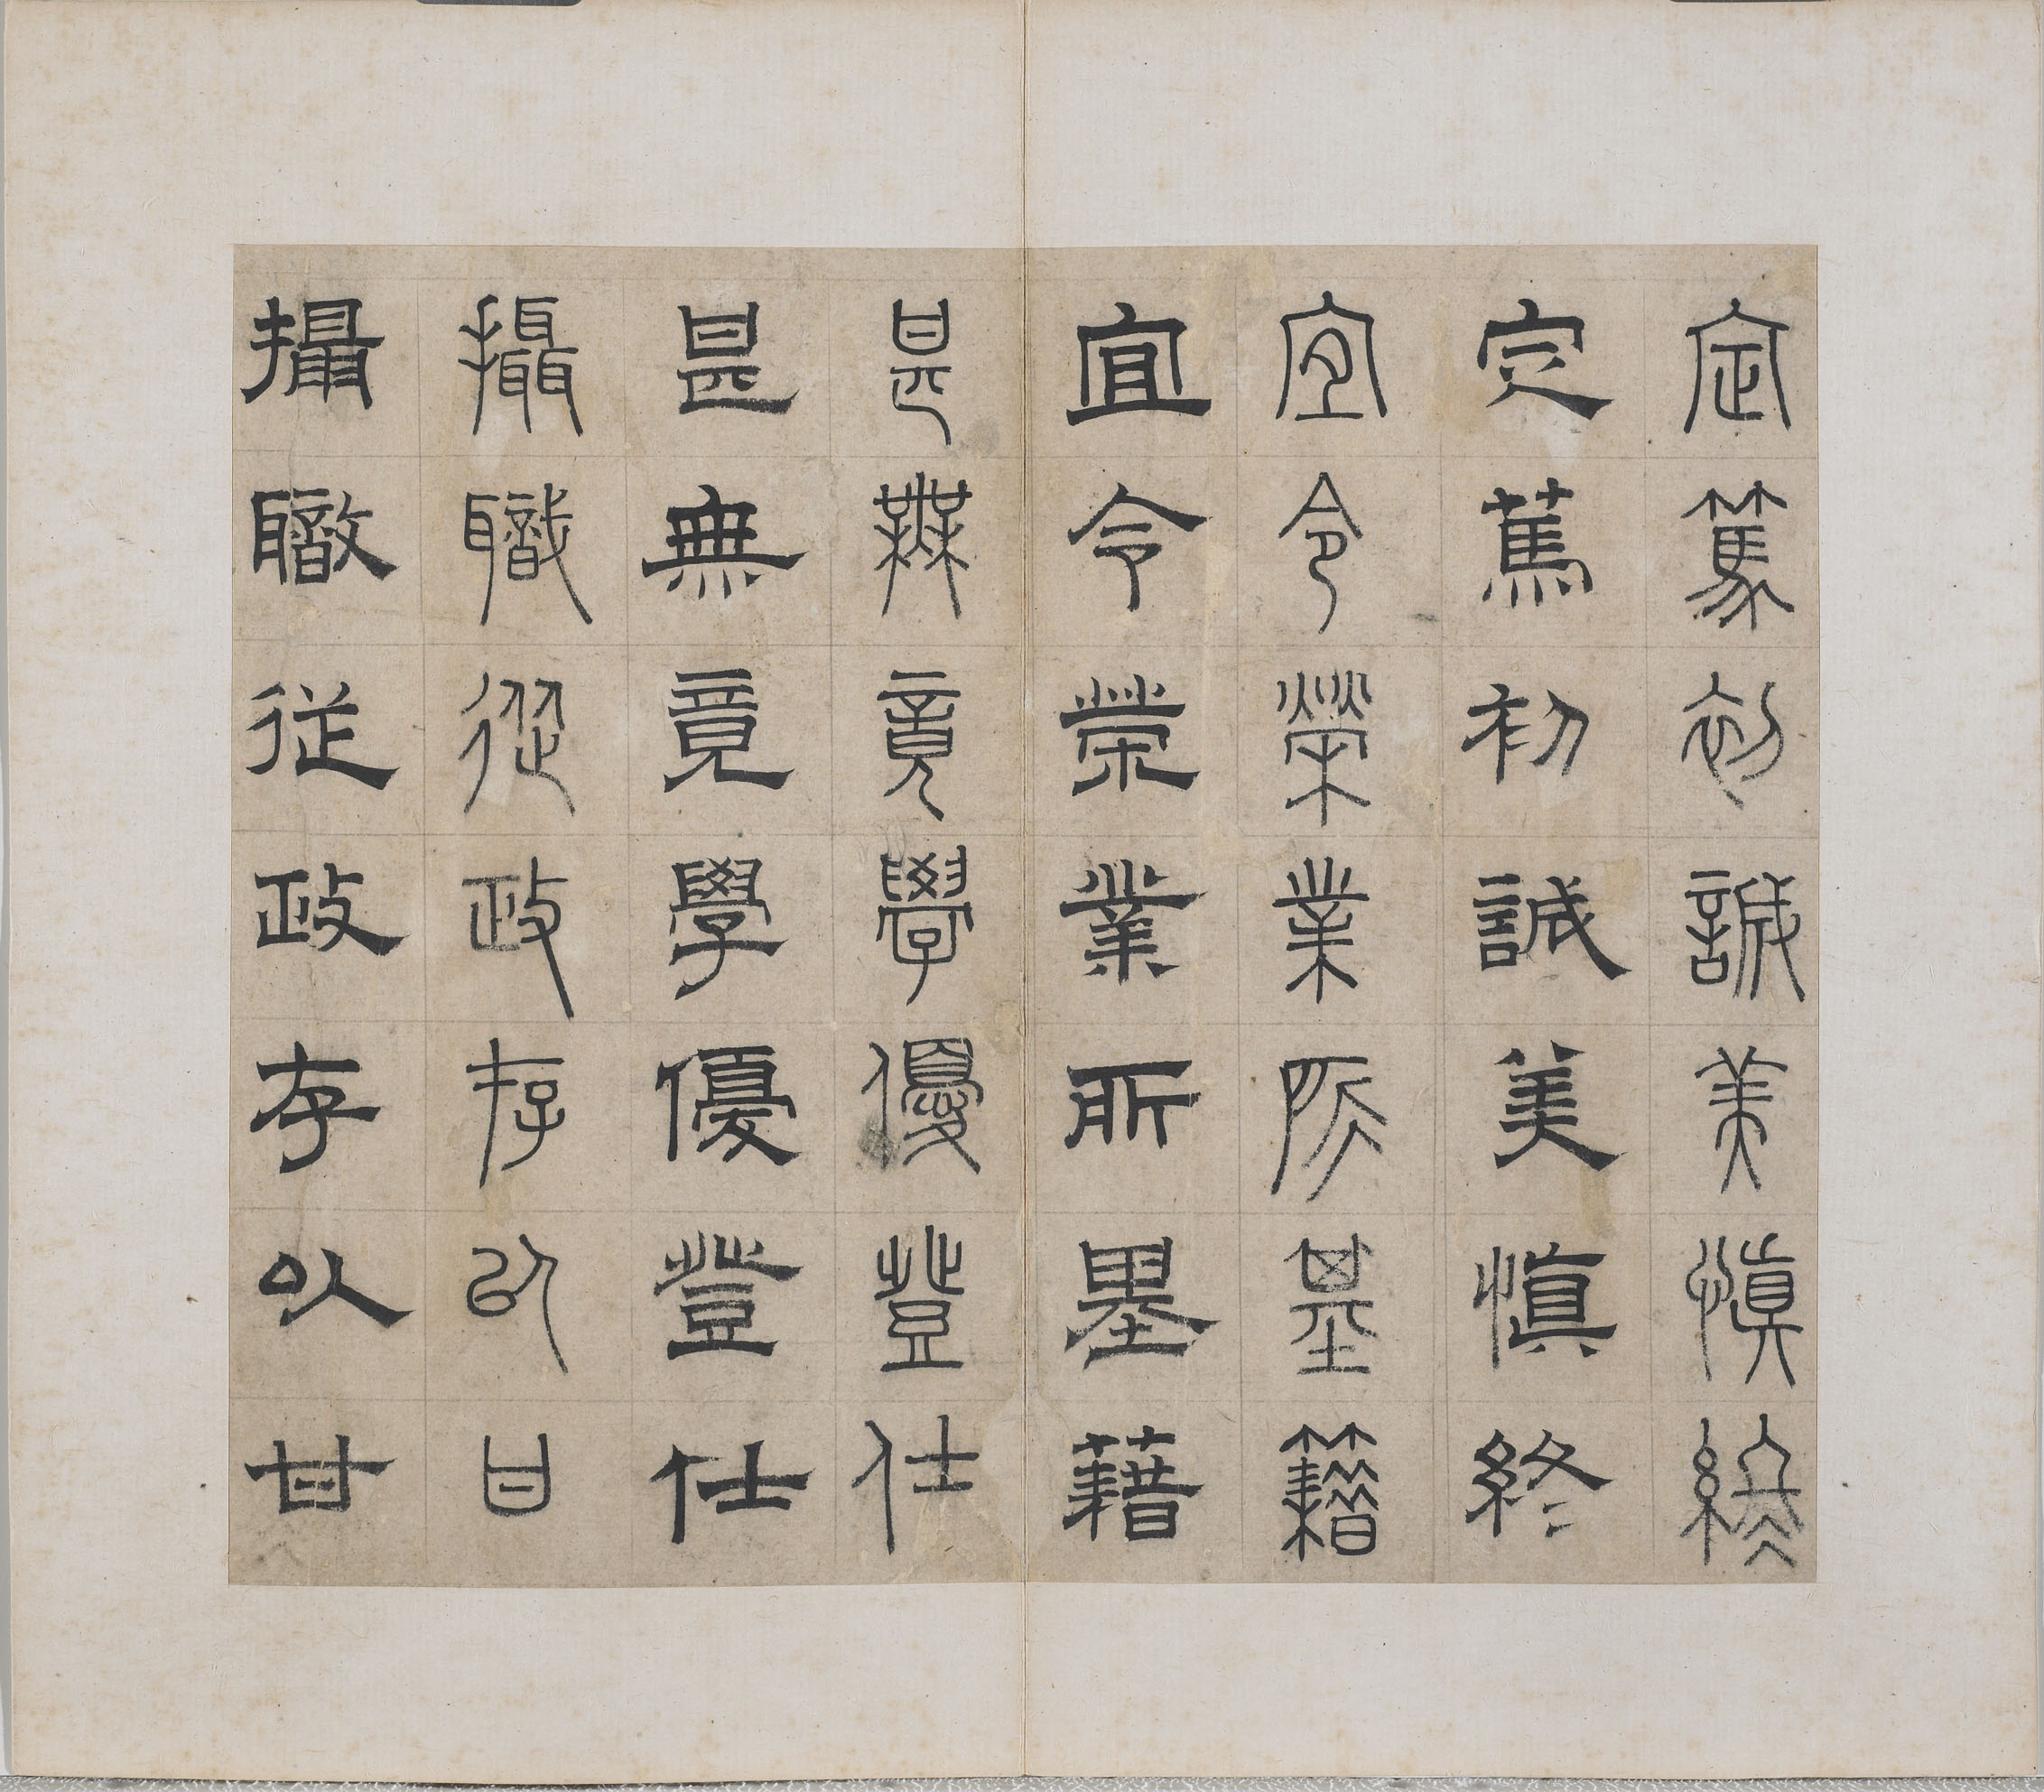 定篤初誠美慎終
定篤初誠美慎終
宜令榮業所基籍
宜令榮業所基藉
甚無竟學優登仕
甚無竟學優登仕
攝職從政存以甘
攝職從政存以甘